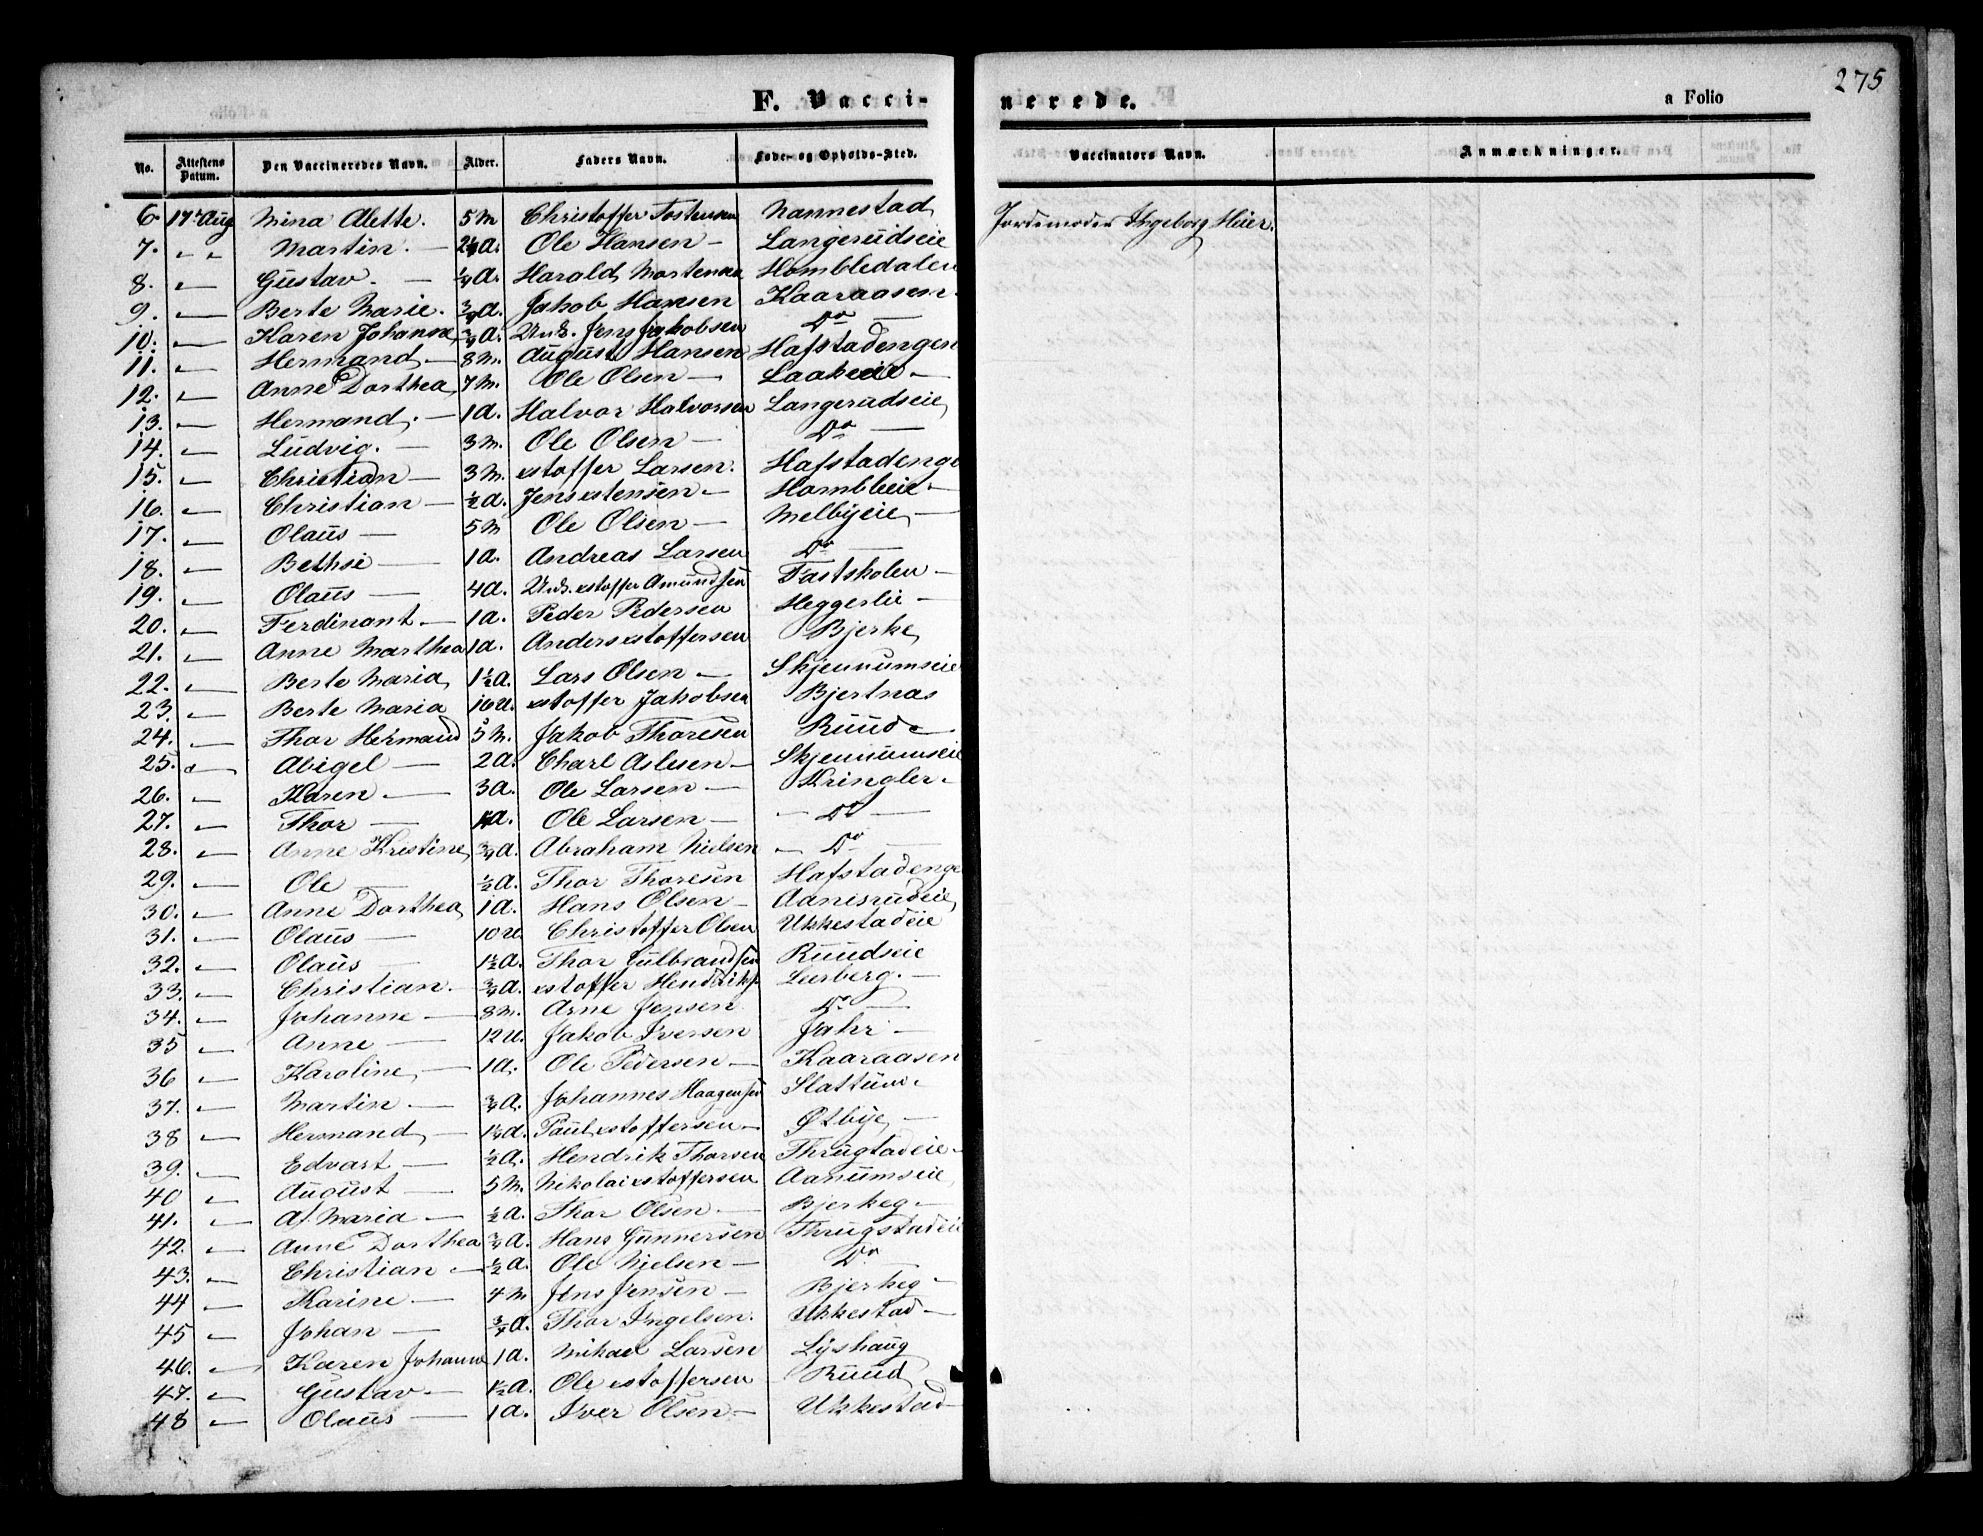 275
F. Vacci-
nerede.
a Folio
No. Attestens Datum. Den Vaccineredes Navn. Alder. Faders Navn. Føde- og Opholds-Sted. Vaccinators Navn. Anmærkninger.
6. 17de Aug Mina Alette. 5 M Christoffer Tostensen Nannestad Jordemoder Ingeborg Heier.
7. " " Martin. — 2¼ A. Ole Hansen — Langerudseie
8. " Gustav. — ¼ A. Harald Mortensen Hombledalen
9. " Berte Marie. ¾ A. Jakob Hansen Kaaraasen.
10. " Karen Johanne ¾ A. Jens Jakobsen Do —
11. " Hermand — 8 M. August Hansen Hafstadengen
12. " Anne Dorthea 7 M. Ole Olsen —
13. " Hermand. — 1 A. Halvor Halvorsen Langerudseie
14. " Ludvig. — 3 M. Ole Olsen — Do —
15. " Christian — 3 M. xstoffer Larsen. Hafstadenge
16. " Christian — ½ A. Jens xstensen — Hombleie —
17. " Olaus — 5 M Ole Olsen — Melbyeie —
18. " Bethsi — 1 A. Andreas Larsen Do —
19. " Olaus — 4 A. xstoffer Amundsen Tastskolen —
20. " Ferdinant — 1 A. Peder Pedersen Heggerlie —
21. " Anne Marthea 1 A. Anders xstoffersen Bjerke
22. " Berte Maria 1½ A. Lars Olsen — Skjennumseie
23. " Berte Maria 16 U. xstoffer Jakobsen Bjertnæs
24. " Thor Hermand 5 M. Jakob Thoresen Ruud —
25. " Abigel — 2 A. Charl Aslesen — Skjennumseie
26. " Karen — 3 A. Ole Larsen — Kringler —
27. " Thor — A. Ole Larsen — — Do —
28. " Anne Kristine ¾ A. Abraham Nielsen — Do —
29. " Ole — ½ A. Thor Thoresen Hafstadenge
30. " Anne Dorthea 1 A. Hans Olsen — Aanerudeie
31. " Olaus — 10 U. Christoffer Olsen Ukkestadeie
32. " Olaus — 1½ A. Thor Gulbrandsen Ruudseie
33. " Christian. — ¾ A. xstoffer Hendriks Leerberg. —
34. " Johanne — 8 M. Arne Jensen Do —
35 " Anne — 12 U. Jakob Iversen Jahr —
36 " Karoline — 1 A. Ole Pedersen — Kaaraasen
37. " Martin — ¾ A. Johannes Haagensen Slattum —
38 " Hermand — 1¼ A. Paul xstoffersen — Østbye —
39. " Edvart — ½ A. Hendrik Thorsen Thrugtadeie —
40 " August — 5 M. Nikolai xstoffersen Aanumseie
41. " A. Maria — ½ A. Thor Olsen — Bjerkeg —
42. " Anne Dorthea ¾ A. Hans Gunnersen Thrugstadeie
43. " Christian — ½ A. Ole Nielsen — Do —
44 " Karine — 4 M Jens Jensen — Bjerkeg —
45 " Johan — ¾ A. Thor Ingelsen. Ukkestad —
46. " Karen Johanne 1 A. Mikael Larsen Lyshaug
47. " Gustav — 1½ A. Ole xstoffersen Ruud
48 " Olaus — 1 A. Iver Olsen — Ukkestad —